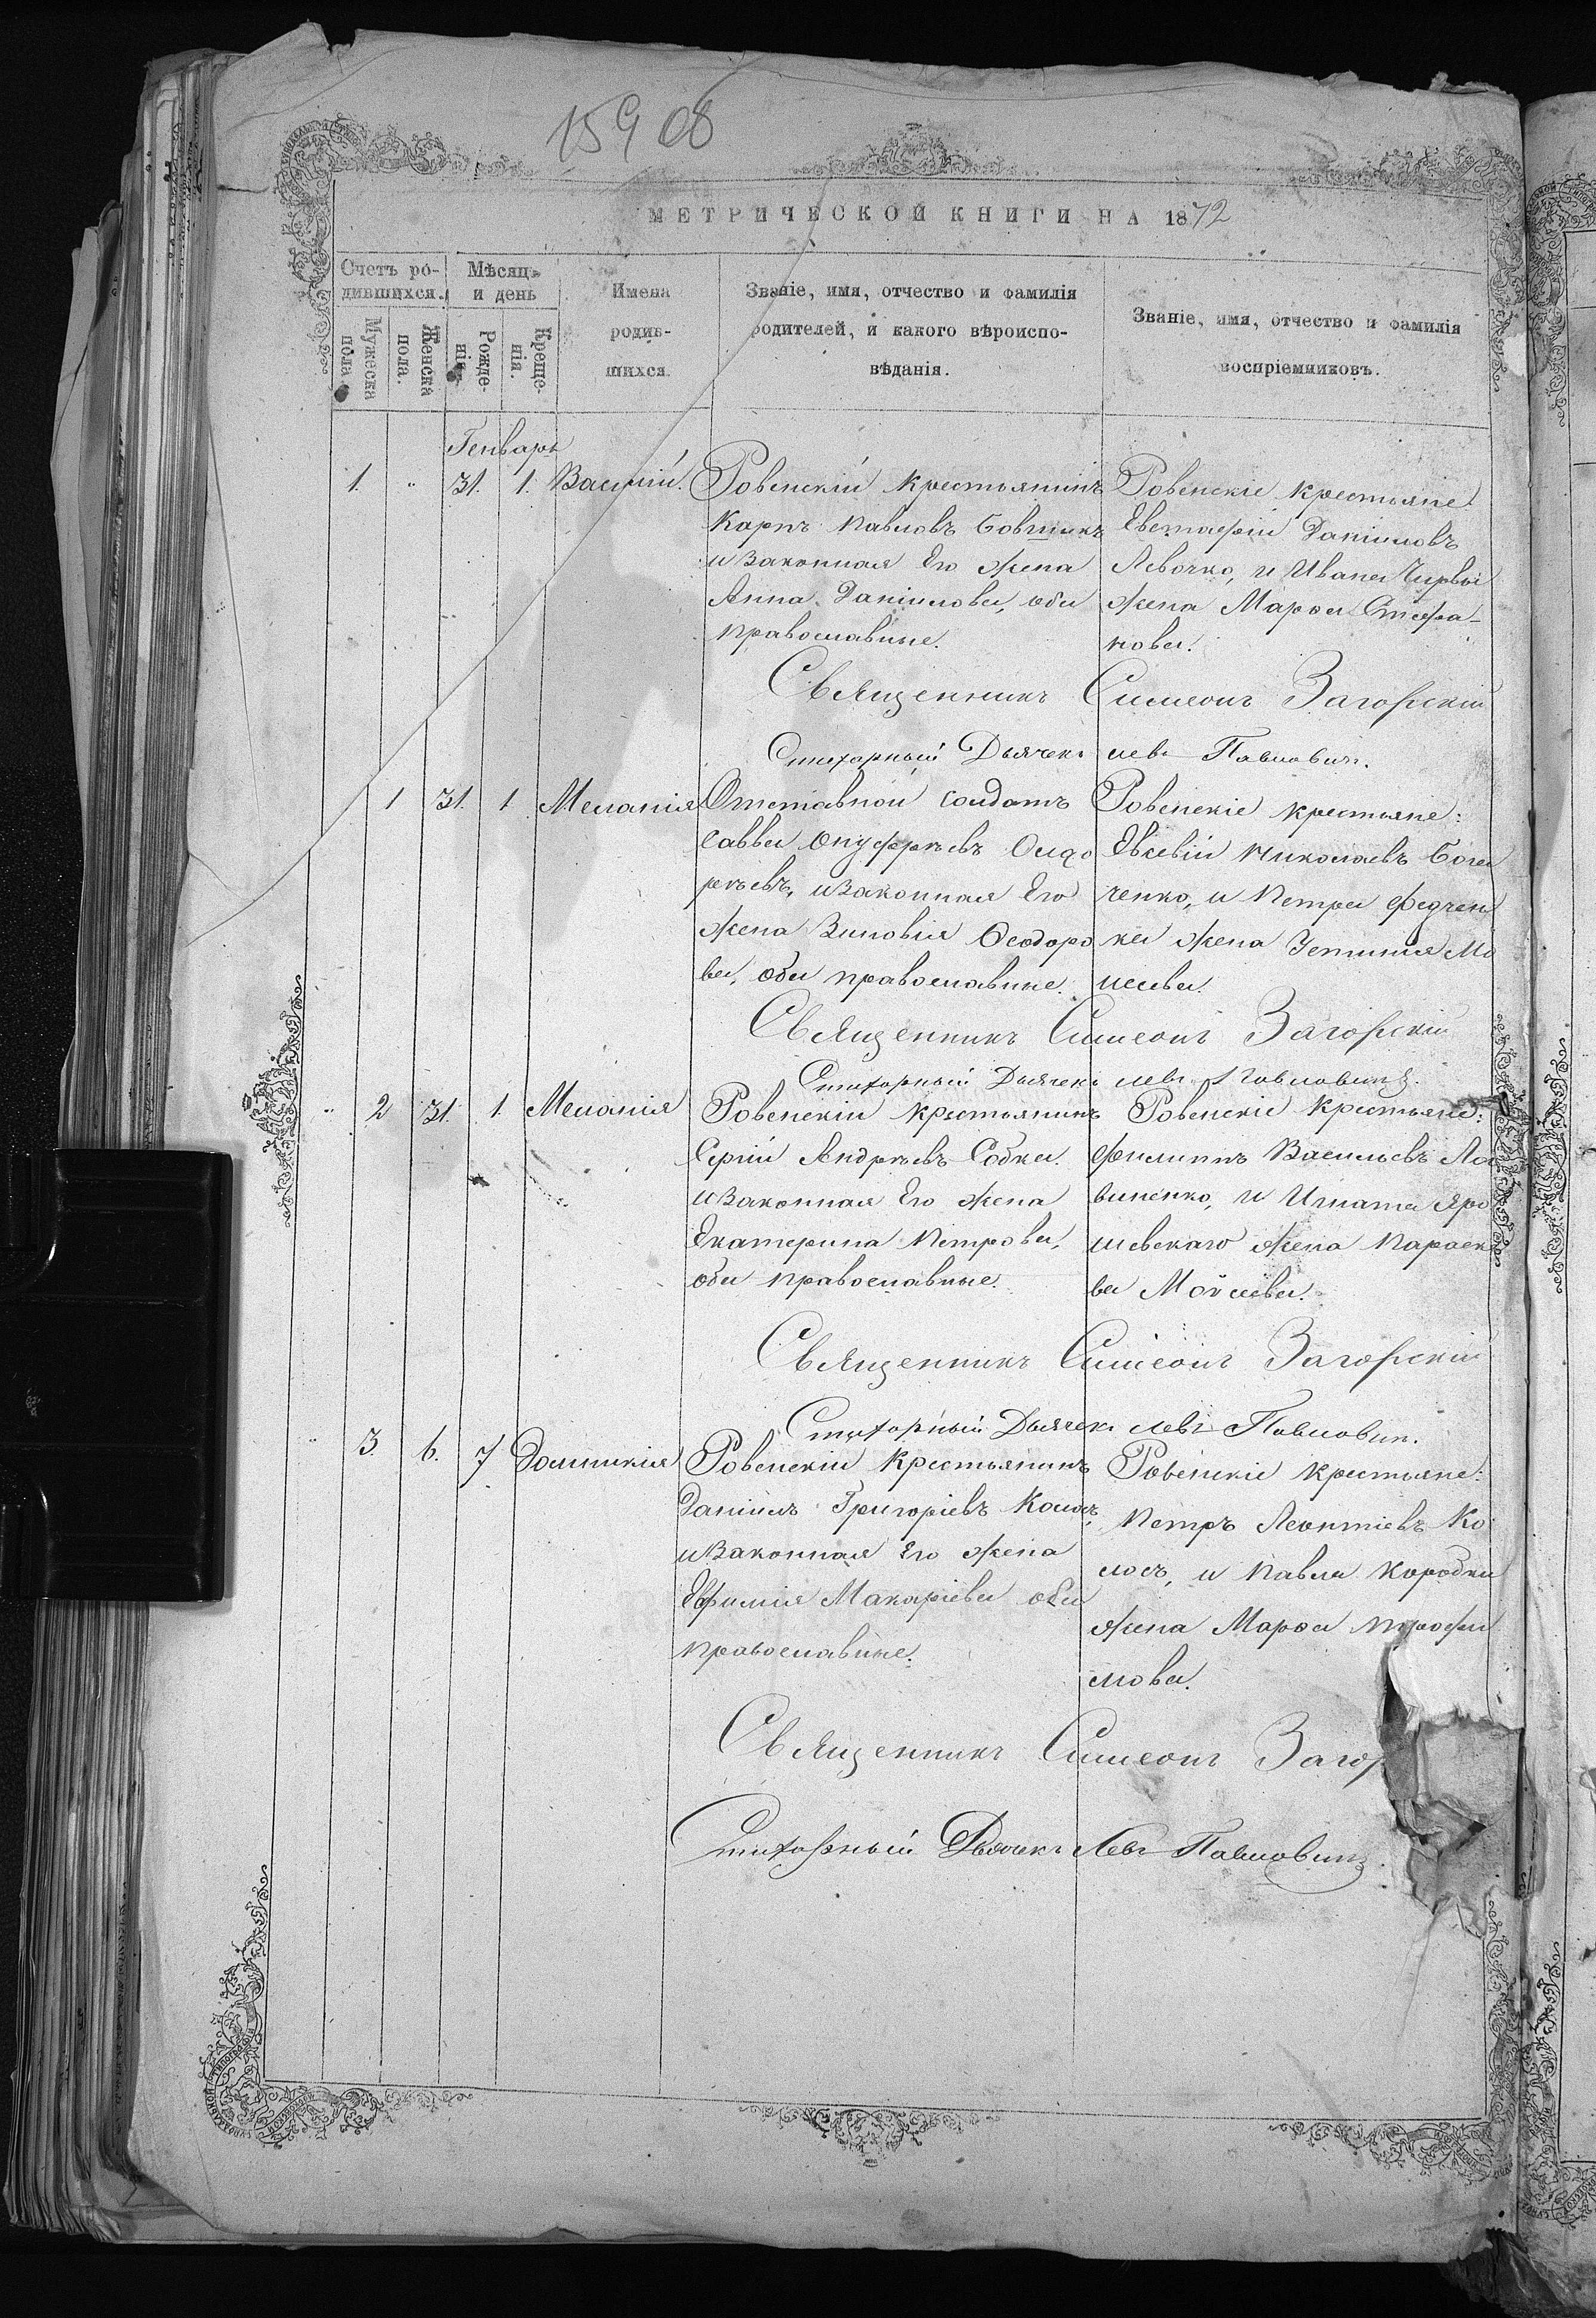 15908
МЕТРИЧЕСКОЙ КНИГИ НА 1872
Счетъ ро-
дившихся.
Мужеска
пола
Женска
пола.
Мѣсяцъ
и день
Рожде-
нія.
Креще-
нія.
Имена
родив-
шихся.
Званіе, имя, отчество и фамилія
родителей, и какого вѣроиспо-
вѣданія.
Званіе, имя, отчество и фамилія
воспріемниковъ.
Генварь
1. " 31. 1. Василій.
Ровенскій крестьянинъ
Карпъ Павловъ
и законная Его жена
Анна Даніилова, оба
православные.
Ровенскіе крестьяне
Евстафій Даніиловъ
Левочко, и Ивана
жена Марѳа Стефа-
нова.
Священникъ Симеонъ Загорскій
Стихарный Дьячекъ Левъ Павловичъ.
1 31. 1 Меланія
Отставной солдатъ
Савва Онуфріевъ
и законная Его
жена Зиновія Ѳеодоро
ва, оба православные.
Ровенскіе крестьяне:
Евсевій Николаевъ
ченко, и Петра Федчен
ка жена Устинія Мо
исеева.
Священникъ Симеонъ Загорскій
Стихарный Дьячекъ Левъ Павловичъ.
" 2 31. 1. Меланія
Ровенскій крестьянинъ
Сергій Андреевъ Собка.
и законная Его жена
Екатерина Петрова,
оба православные.
Ровенскіе крестьяне:
Филиппъ Васильевъ
виненко, и Игната Яро
шевскаго жена Параске
ва Мойсеева.
Священникъ Симеонъ Загорскій
Стихарный Дьячекъ Левъ Павловичъ.
" 3. 6. 7 Домникія
Ровенскій Крестьянинъ
Даніилъ Григоріевъ Колосъ,
и законная Его жена
Евфимія Макаріева оба
православные.
Ровенскіе крестьяне:
Петръ Леонтіевъ Ко
лосъ, и Павла Коробки
жена Марѳа Трофи
мова.
Священникъ Симеонъ Загор
Стихарный Дьячекъ Левъ Павловичъ.